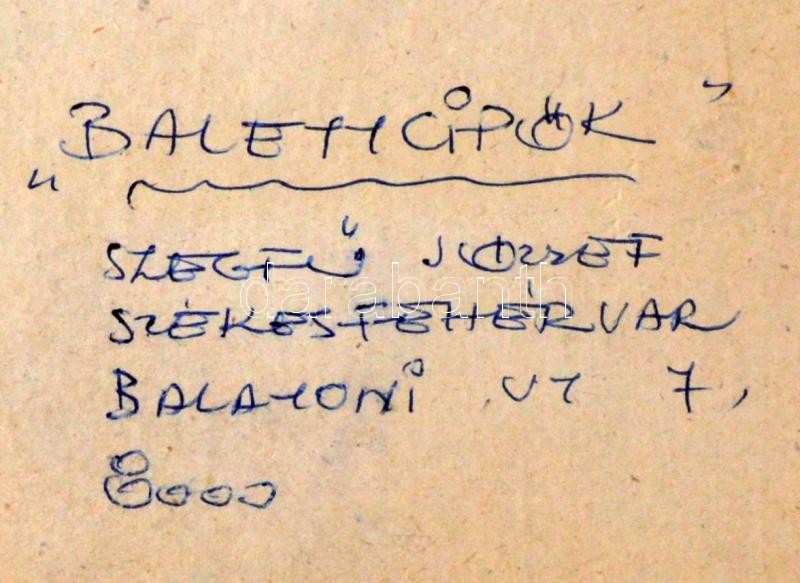 „BALETTCIPŐK”
SZEGFŰ JÓZSEF
SZÉKESFEHÉRVÁR
BALATONI UT 7,
8000
darabanth